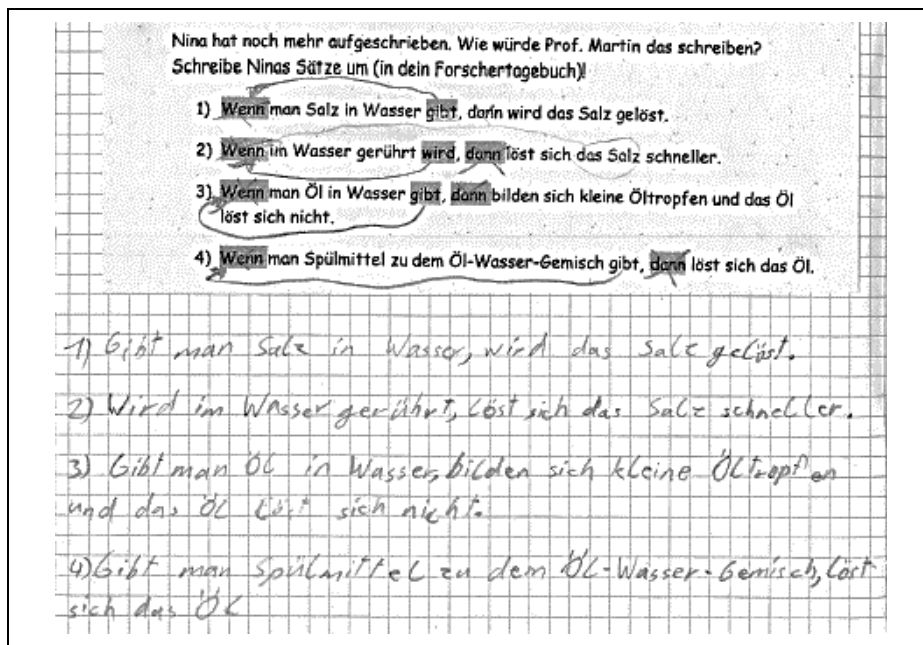 Nina hat noch mehr aufgeschrieben. Wie würde Prof. Martin das schreiben?
Schreibe Ninas Sätze um (in dein Forschertagebuch)!
1) Wenn man Salz in Wasser gibt, dann wird das Salz gelöst.
2) Wenn im Wasser gerührt wird, dann löst sich das Salz schneller.
3) Wenn man Öl in Wasser gibt, dann bilden sich kleine Öltropfen und das Öl
löst sich nicht.
4) Wenn man Spülmittel zu dem Öl-Wasser-Gemisch gibt, dann löst sich das Öl.
1) Gibt man Salz in Wasser, wird das Salz gelöst.
2) Wird im Wasser gerührt, löst sich das Salz schneller.
3) Gibt man Öl in Wasser, bilden sich kleine Öltropfen
und das Öl löst sich nicht.
4) Gibt man Spülmittel zu dem Öl-Wasser-Gemisch, löst
sich das Öl